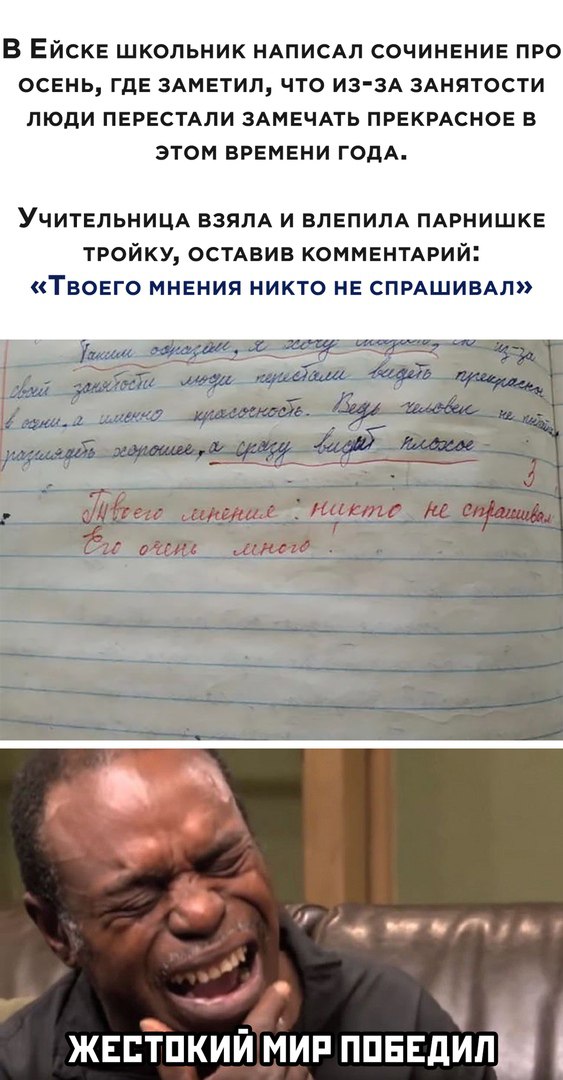 В Ейске школьник написал сочинение про
осень, где заметил, что из-за занятости
люди перестали замечать прекрасное в
этом времени года.
Учительница взяла и влепила парнишке
тройку, оставив комментарий:
«Твоего мнения никто не спрашивал»
Таким образом, я хочу сказать, из-за
своей занятости люди перестали видеть прекрасное
в осени, а именно красочность. Ведь человек не
разглядеть хорошее, а сразу видит плохое
3
Твоего мнения никто не спрашивал
Его очень много!
ЖЕСТОКИЙ МИР ПОБЕДИЛ